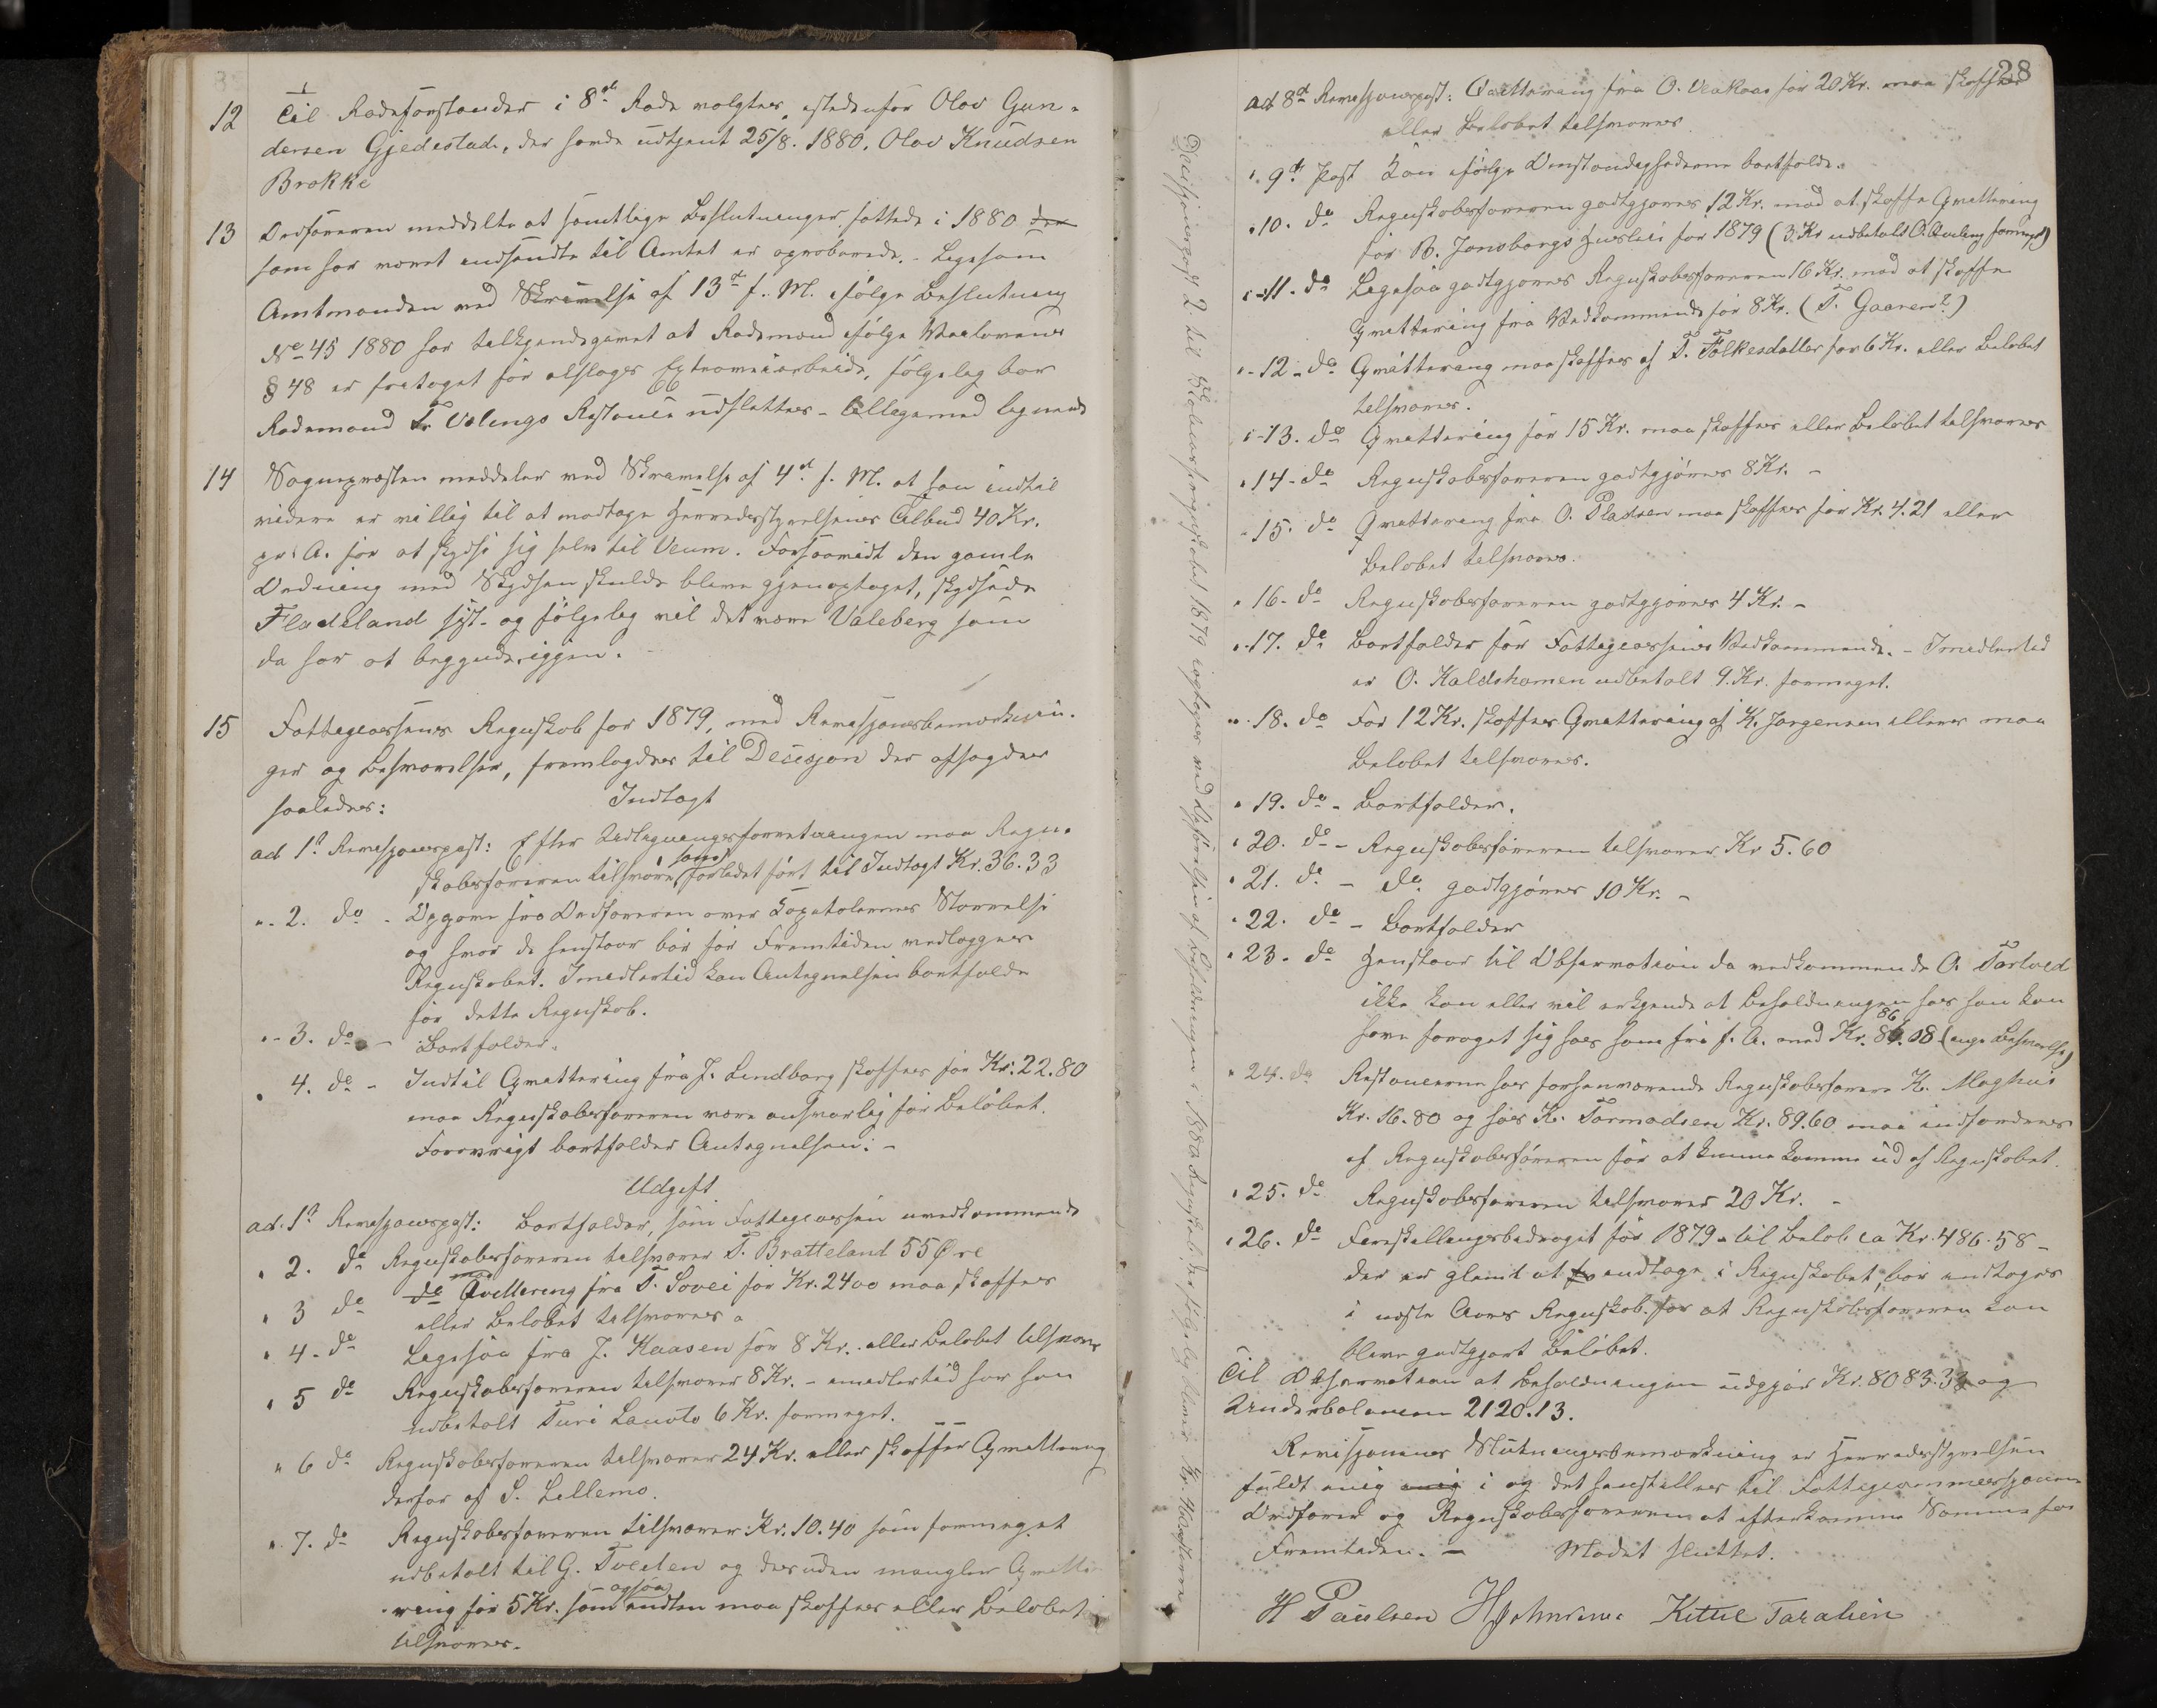 12 Til Rodeforstander i 8de Rode valgtes istedenfor Olav Gun-
dersen Gjedestad, der havde udtjent 25/8. 1880. Olav Knudsen
Brokke
13 Ordføreren meddelte at samtlige Beslutninger fattede i 1880
som har været indsendte til Amtet er approberede. - Ligesom
Amtmanden ved Skrivelse af 13de f. M. ifølge Beslutning
No 45 1880 har tilkjendegivet at Rodemænd ifølge Veilovens
§ 48 er fritaget for alslags Extraveiarbeide, følgelig bør
Rodemand Restance udslettes - lignende
14 Sognepræsten meddeler ved Skrivelse af 4de f. M. at han indtil
videre er villig til at modtage Herredsstyrelsens Tilbud 40 Kr.
pr. A. for at skydse sig selv til Veum. Forsaavidt den gamle
Ordning med Skydsen skulde blive gjenoptaget, skydsede
Fladeland sist - og følgelig vil det være Valeberg som
da har at begynde igjen. -
15 Fattigcassens Regnskab for 1879, med Revisjonsbemærknin-
ger og Besvarelser, fremlagdes til Decisjon der afsagdes
saaledes: Indtægt
ad 1ste Revisjonspost: Efter Udligningsforretningen maa Regn-
skabsføreren tilsvare som forladet ført til Indtægt Kr. 36.33
" 2. do - Opgave fra Ordføreren over Kapitalernes Størrelse
og hvor de henstaar bør for Fremtiden vedlægges
Regnskabet. Imidlertid kan Antegnelsen bortfalde
for dette Regnskab.
" 3. do - Bortfalder.
" 4. do - Indtil Qvittering fra J. Lindborg skaffes for Kr. 22.80
maa Regnskabsføreren være ansvarlig for Beløbet.
Forøvrigt bortfalder Antegnelsen. -
Udgift.
ad. 1ste Revisjonspost: Bortfalder, som Fattigcassen uvedkommende
" 2. do Regnskabsføreren tilsvarer T. Bratteland 55 Øre
" 3 do Qvittering fra T. Lovei for Kr. 24 00 maa skaffes
eller Beløbet tilsvares
" 4. do Ligesaa fra J. Kaasen for 8 Kr. eller Beløbet tilsvares
" 5 do Regnskabsføreren tilsvarer 8 Kr. - imidlertid har han
udbetalt Turi Lauvto 6 Kr. formeget.
" 6 do Regnskabsføreren tilsvarer 24 Kr. eller skaffer Qvittering
derfor af S. Lillemo.
" 7. do Regnskabsføreren tilsvarer Kr. 10.40 som formeget
udbetalt til G. Tveiten og desuden mangler Qvitte-
ring for 5 Kr. som ogsaa enten maa skaffes eller Beløbet
tilsvares.
28
ad 8de Revisjonspost: Qvittering fra O. for 20 Kr. maa skaffes
eller Beløbet tilsvares
" 9de Post Kan ifølge Omstændighederne bortfalde.
" 10. do Regnskabsføreren godtgjøres 12 Kr. mod at skaffe Qvittering
for B. Jonsborgs Husleie for 1879 (3 Kr udbetalt formeget)
" 11. do Ligesaa godtgjøres Regnskabsføreren 16 Kr. mod at skaffe
Qvittering fra Vedkommende for 8 Kr. (T. )
" 12. do Qvittering maa skaffes af T. Folkesdatter for 6 Kr. eller Beløbet
tilsvares.
" 13. do Qvittering for 15 Kr. maa skaffes eller Beløbet tilsvares
" 14. do Regnskabsføreren godtgjøres 8 Kr. -
" 15. do Qvittering fra O. Pladsen maa skaffes for Kr. 4.21 eller
Beløbet tilsvares.
" 16. do Regnskabsføreren godtgjøres 4 Kr. -
" 17. do Bortfalder for Fattigcassens Vedkommende. - Imidlertid
er O. Kaldshomen udbetalt 9. Kr. formeget.
" 18. do For 12 Kr. skaffes Qvittering af K. Jørgensen ellers maa
Beløbet tilsvares.
" 19. do - Bortfalder.
" 20. do - Regnskabsføreren tilsvarer Kr 5.60
" 21. do - do godtgjøres 10 Kr. -
" 22. do - Bortfalder
" 23. do Henstaar til Observation da vedkommende O. Tortveid
ikke kan eller vil erkjende at Beholdningen hos ham kan
have forøget sig hos ham fra f. A. med Kr. 86.08
" 24. do Restancerne hos forhenværende Regnskabsfører K. Moghus
Kr. 16.80 og hos K. Tarmodsen Kr. 89.60 maa indfordres
af Regnskabsføreren for at kunne komme ud af Regnskabet.
" 25. do Regnskabsføreren tilsvarer 20 Kr. -
" 26. do til Beløb ca Kr. 486.58 -
der er glemt at indtage i Regnskabet, bør indtages
i neste Aars Regnskab for at Regnskabsføreren kan
blive godtgjort Beløbet.
Til Observation at Beholdningen udgjør Kr. 8083.33 og
Underbalancen 2120.13.
Revisjonens Slutningsbemærkning er Herredsstyrelsen
fuldt enig enig i og det henstilles til Fattigcommissjonens
Ordfører og Regnskabsføreren at efterkomme Samme for
Fremtiden. - Mødet sluttet.
H Paulsen Kittil Taralsen